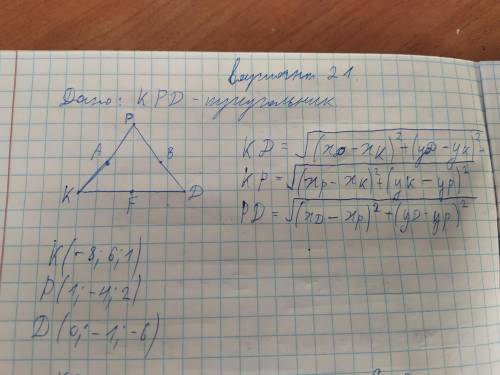 Вариант 21.
Дано: KPD - треугольник
P
A
B
K
F
D
KD = √(x_D - x_K)² + (y_D - y_K)² =
KP = √(x_P - x_K)² + (y_K - y_P)²
PD = √(x_D - x_P)² + (y_D - y_P)²
K(-8; 6; 1)
P(1; -4; 2)
D(0; -1; -6)